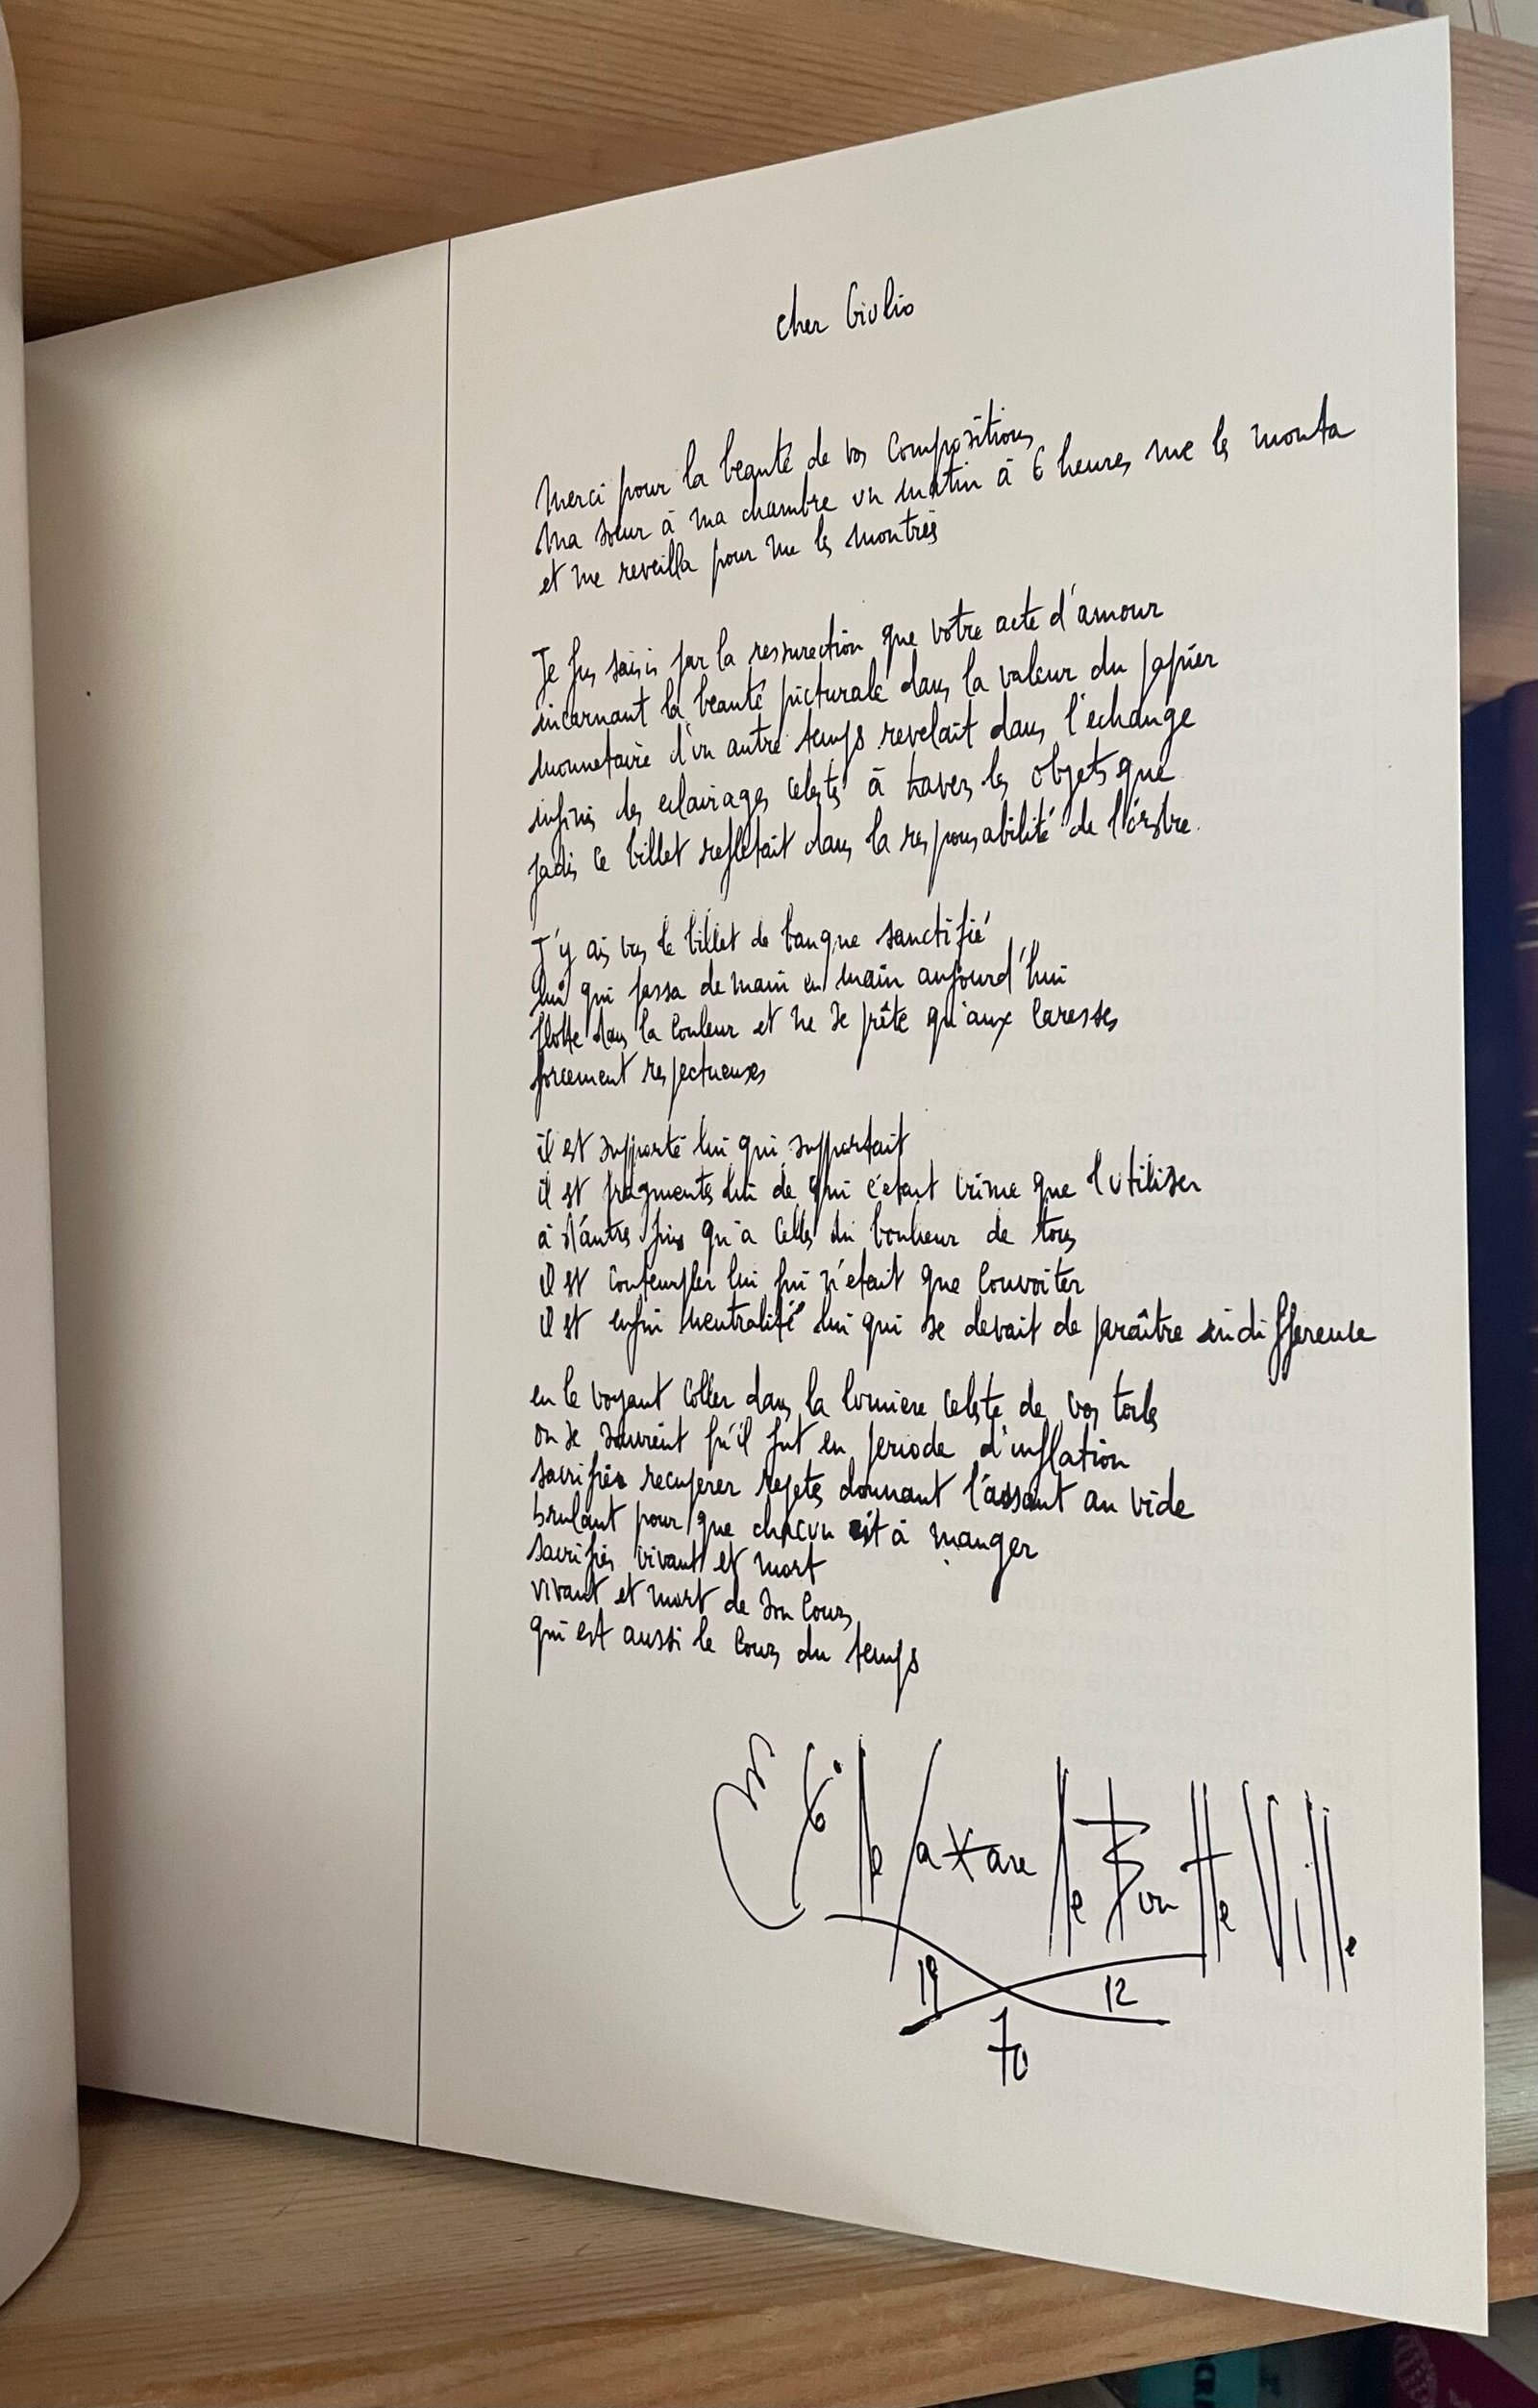 cher Giulio
Merci pour la beauté de vos compositions
Ma sœur à ma chambre un matin à 6 heures me les monta
et me reveilla pour me les montrés
Je fus saisis par la ressurection que votre acte d'amour
incarnant la beauté picturale dans la valeur du papier
monnetaire d'un autre temps revelait dans l'echange
infinis des eclairages celeste à travers les objets que
jadis ce billet refletait dans la responsabilité de l'
J'y ais vus le billet de banque sanctifié
lui qui passa de main en main aujourd'hui
flotte dans la couleur et ne se prête qu'aux caresses
forcement respectueuses
il est supporté lui qui supportait
il est fragmentés lui de qui c'etait crime que l'utiliser
à d'autres fins qu'a celles du bonheur de tous
il est contempler lui qui n'etait que convoiter
il est enfin neutralité lui qui se devait de paraître indifference
en le voyant coller dans la lumiere celeste de vos toiles
on se souvient qu'il fut en periode d'inflation
sacrifiés recuperer rejetés donnant l'assaut au vide
brulant pour que chacun ait à manger
sacrifiés vivant et mort
vivant et mort de son cours
qui est aussi le cours du temps
19 12
70